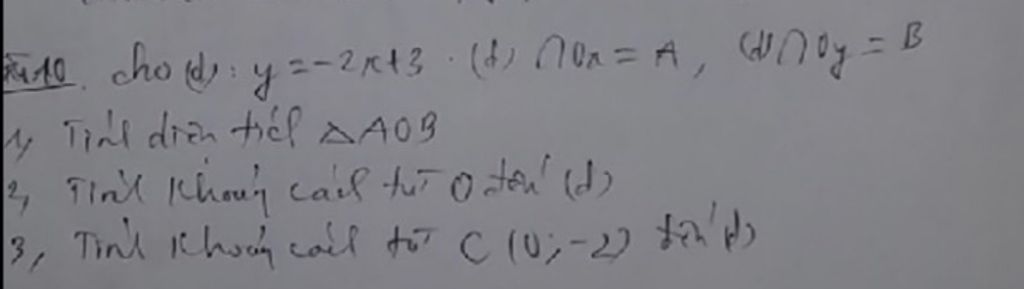 Bài 10. cho (d): y = -2x+3. (d) ∩ Ox = A, (d) ∩ Oy = B
1, Tính diện tích △AOB
2, Tính khoảng cách từ O đến (d)
3, Tính khoảng cách từ C (0; -2) đến (d)